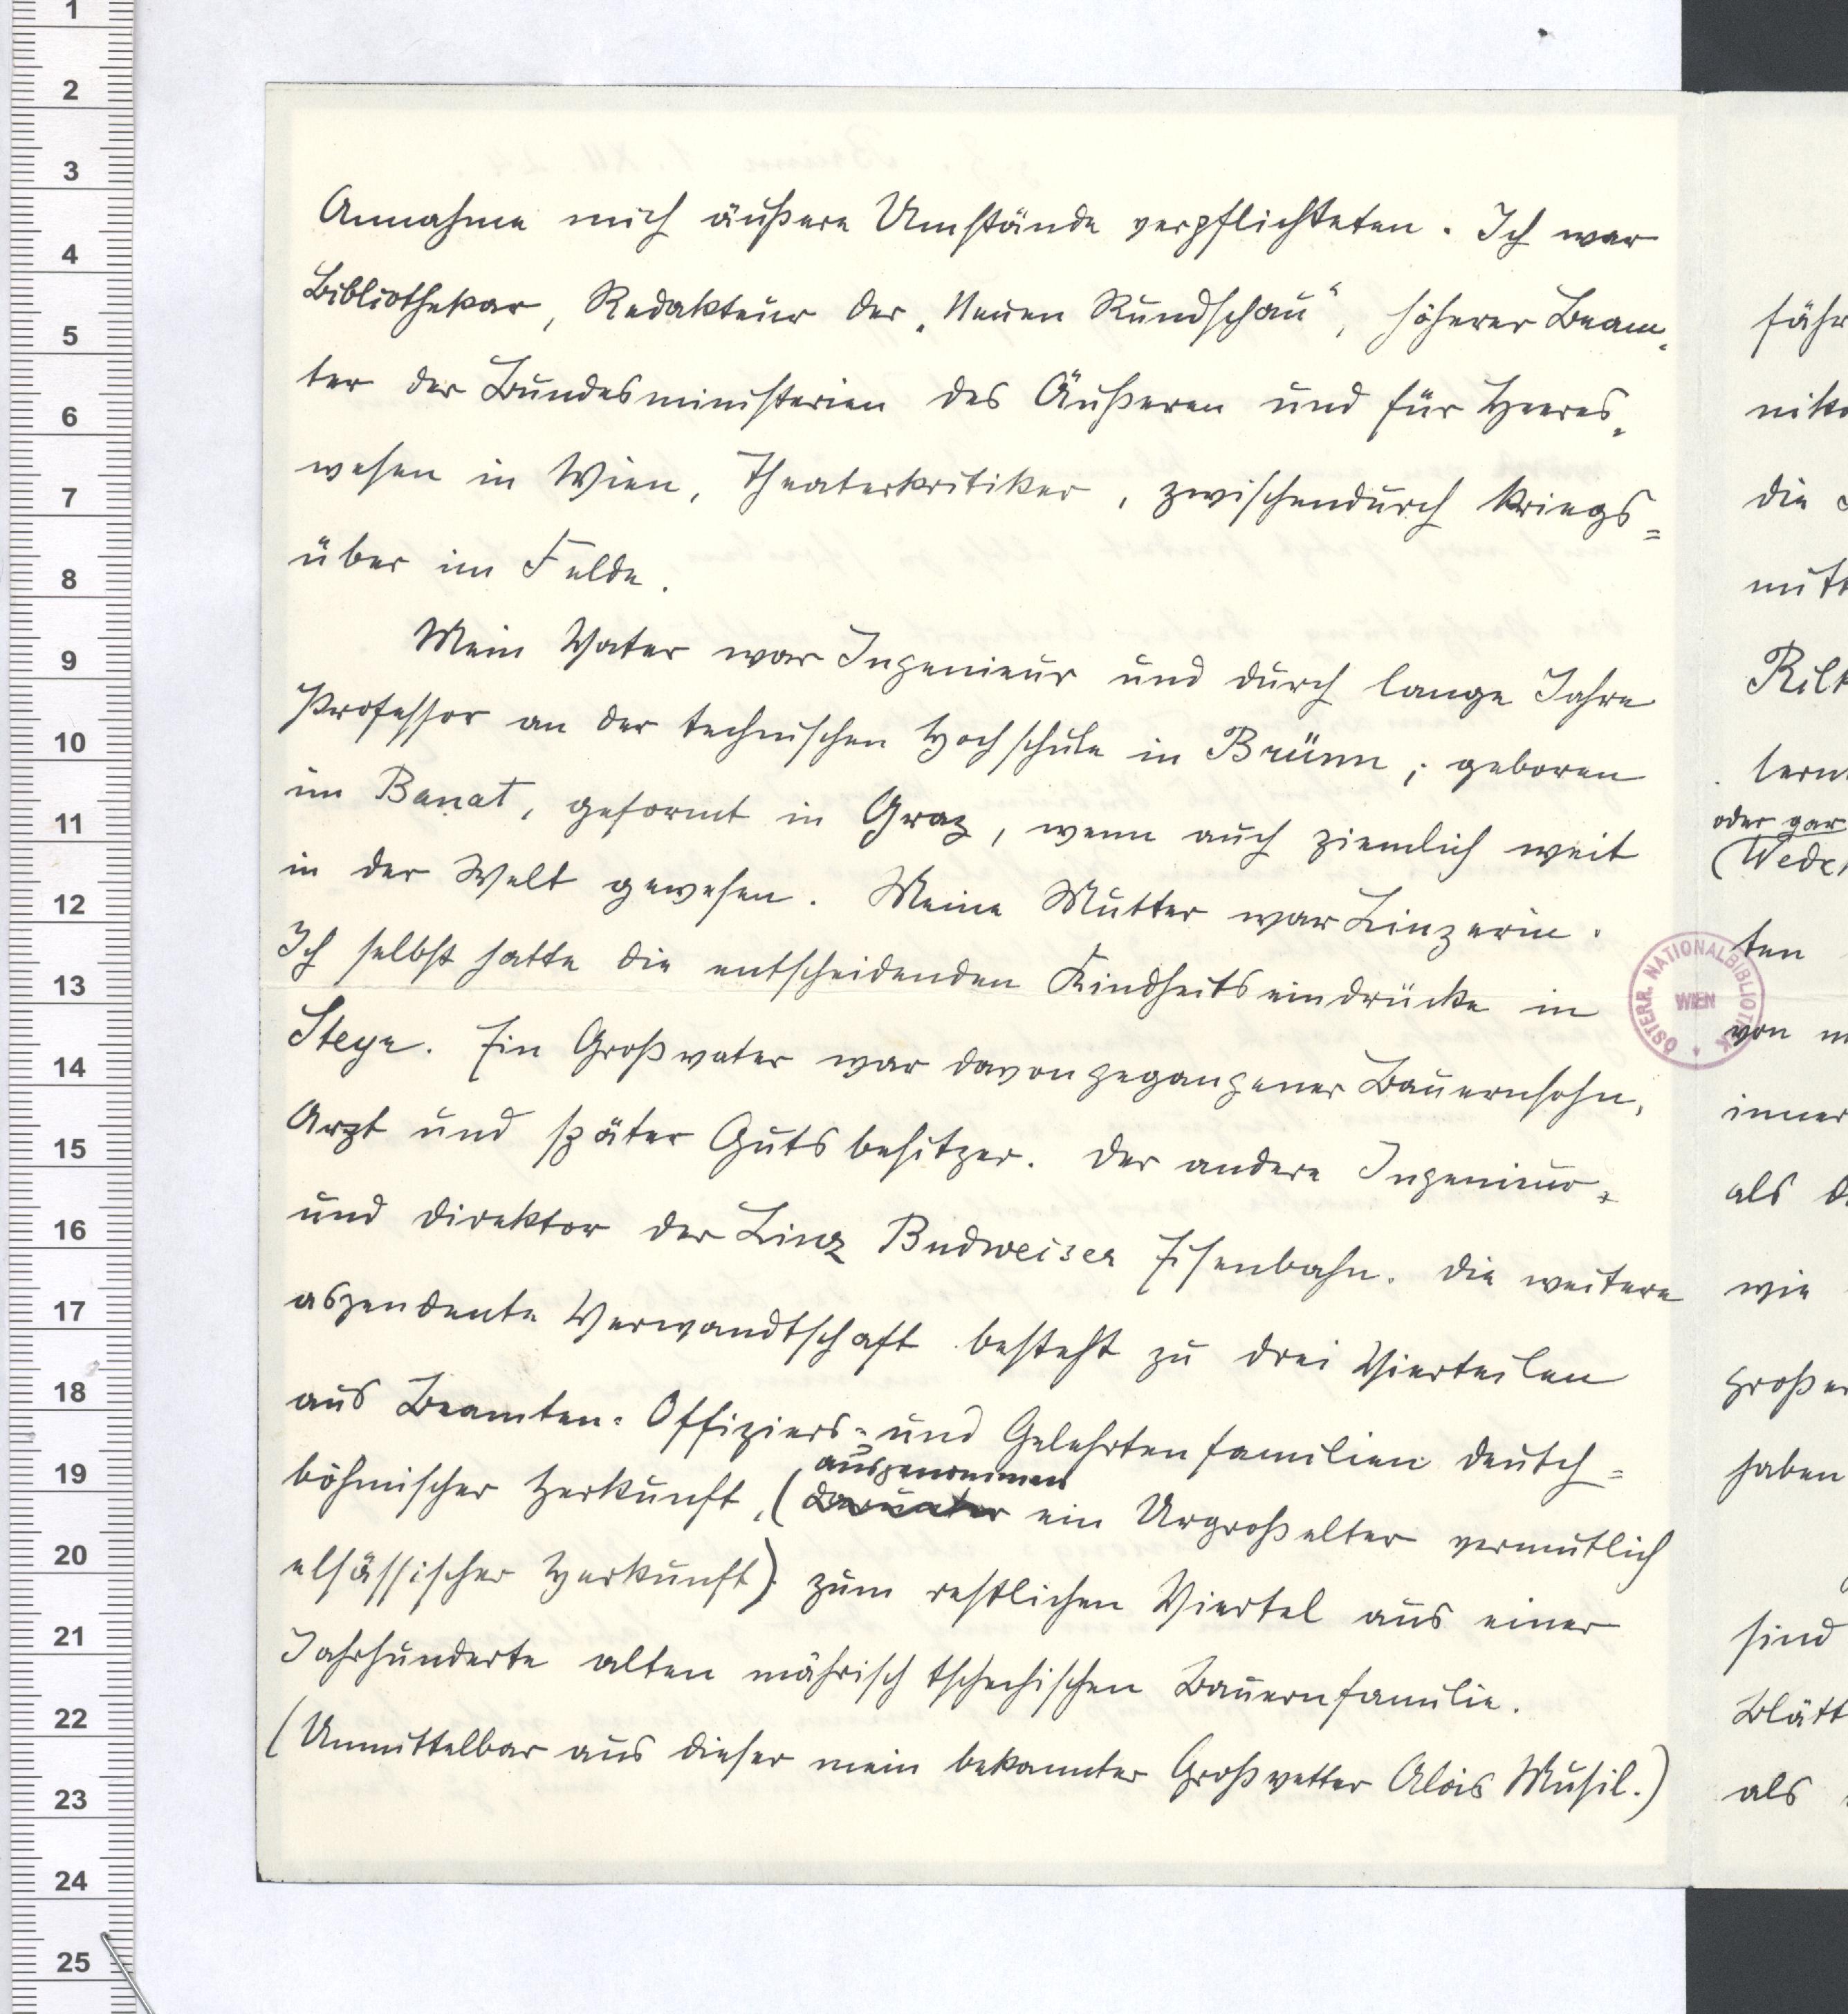 Annahme mich äußere Umstände verpflichteten. Ich war
Bibliothekar, Redakteur der „Neuen Rundschau“, höherer Beam-
ter der Bundesministerien des Äußeren und für Heeres-
wesen in Wien, Theaterkritiker, zwischendurch kriegs=
über im Felde.
Mein Vater war Ingenieur und durch lange Jahre
Professor an der technischen Hochschule in Brünn; geboren
im Banat, geformt in Graz, wenn auch ziemlich weit
in der Welt gewesen. Meine Mutter war Linzerin.
Ich selbst hatte die entscheidenden Kindheitseindrücke in
Steyr. Ein Großvater war davongegangener Bauernsohn,
Arzt und später Gutsbesitzer. Der andere Ingenieur
und Direktor der Linz Budweiser Eisenbahn. Die weitere
aszendente Verwandtschaft besteht zu drei Vierteilen
aus Beamten- Offiziers- und Gelehrtenfamilien deutch=
ausgenommen
böhmischer Herkunft, (darunter ein Urgroßelter vermutlich
elsässischer Herkunft) zum restlichen Viertel aus einer
Jahrhunderte alten mährisch tschechischen Bauernfamilie.
(Unmittelbar aus dieser mein bekannter Großvetter Alois Musil.)
fähr
nik
die
mitt
Rilk
lern
oder gar
(Wede
ten
von
inner
als
wie
große
haben
sind
Blätt
als
ÖSTERR. NATIONALBIBLIOTHEK
WIEN
1
2
3
4
5
6
7
8
9
10
11
12
13
14
15
16
17
18
19
20
21
22
23
24
25